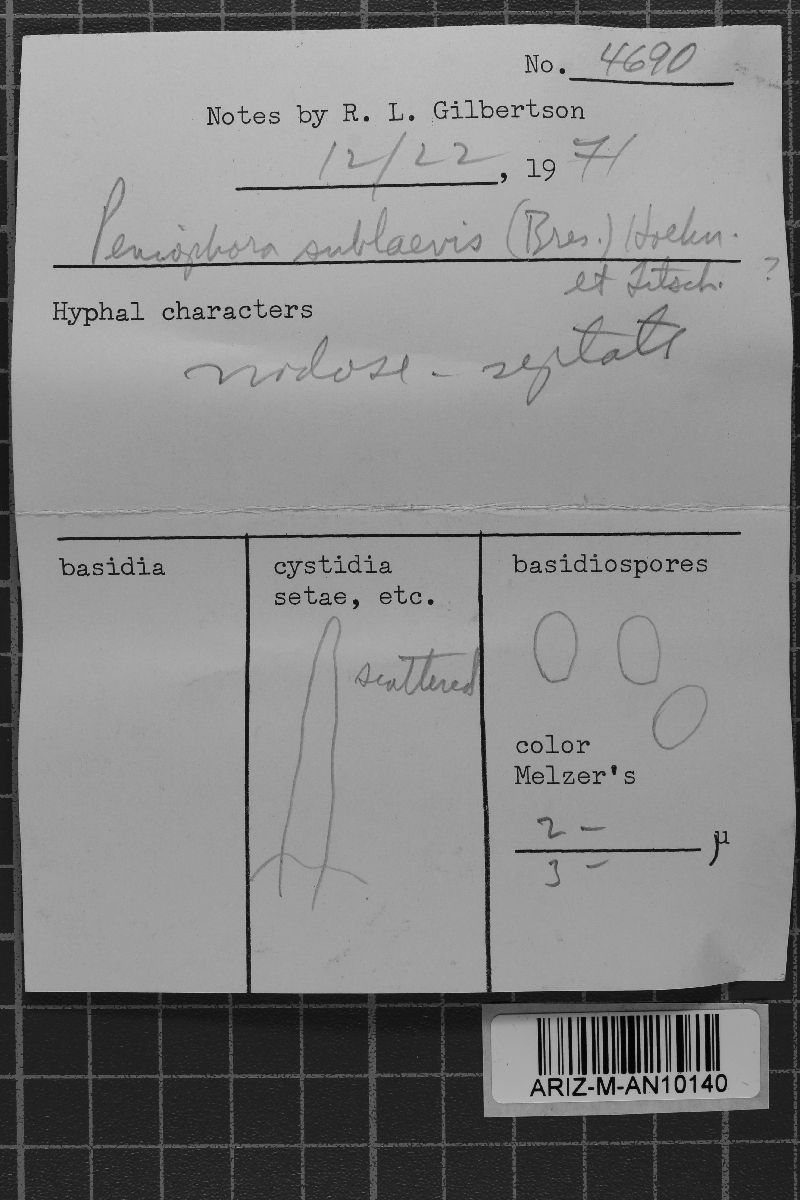 No. 4690
Notes by R. L. Gilbertson
12/22, 1971
Peniophora sublaevis (Bres.) Hoehn.
et Litsch. ?
Hyphal characters
nodose - septate
basidia
cystidia
setae, etc.
scattered
basidiospores
color
Melzer's
2 -
μ
3 -
ARIZ-M-AN10140